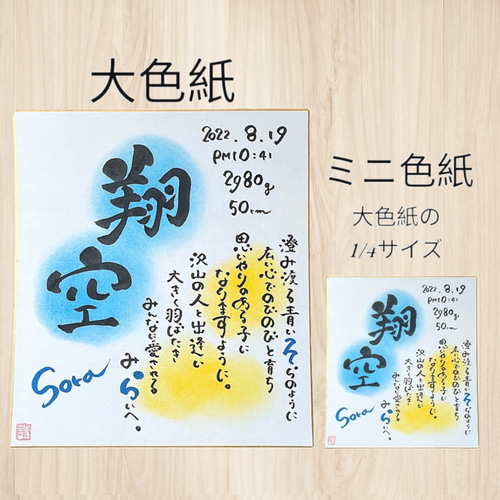 大色紙
2022.8.19
PM10:41
2980g
50cm
翔空
澄み渡る青いそらのように
広い心でのびのびと育ち
思いやりのある子に
なりますように。
沢山の人と出逢い
大きく羽ばたき
みんなに愛される
みらいへ。
Sora
ミニ色紙
大色紙の
1/4サイズ
2022.8.19
PM10:41
2980g
50cm
翔空
澄み渡る青いそらのように
広い心でのびのびと育ち
思いやりのある子に
なりますように。
沢山の人と出逢い
大きく羽ばたき
みんなに愛される
みらいへ。
Sora